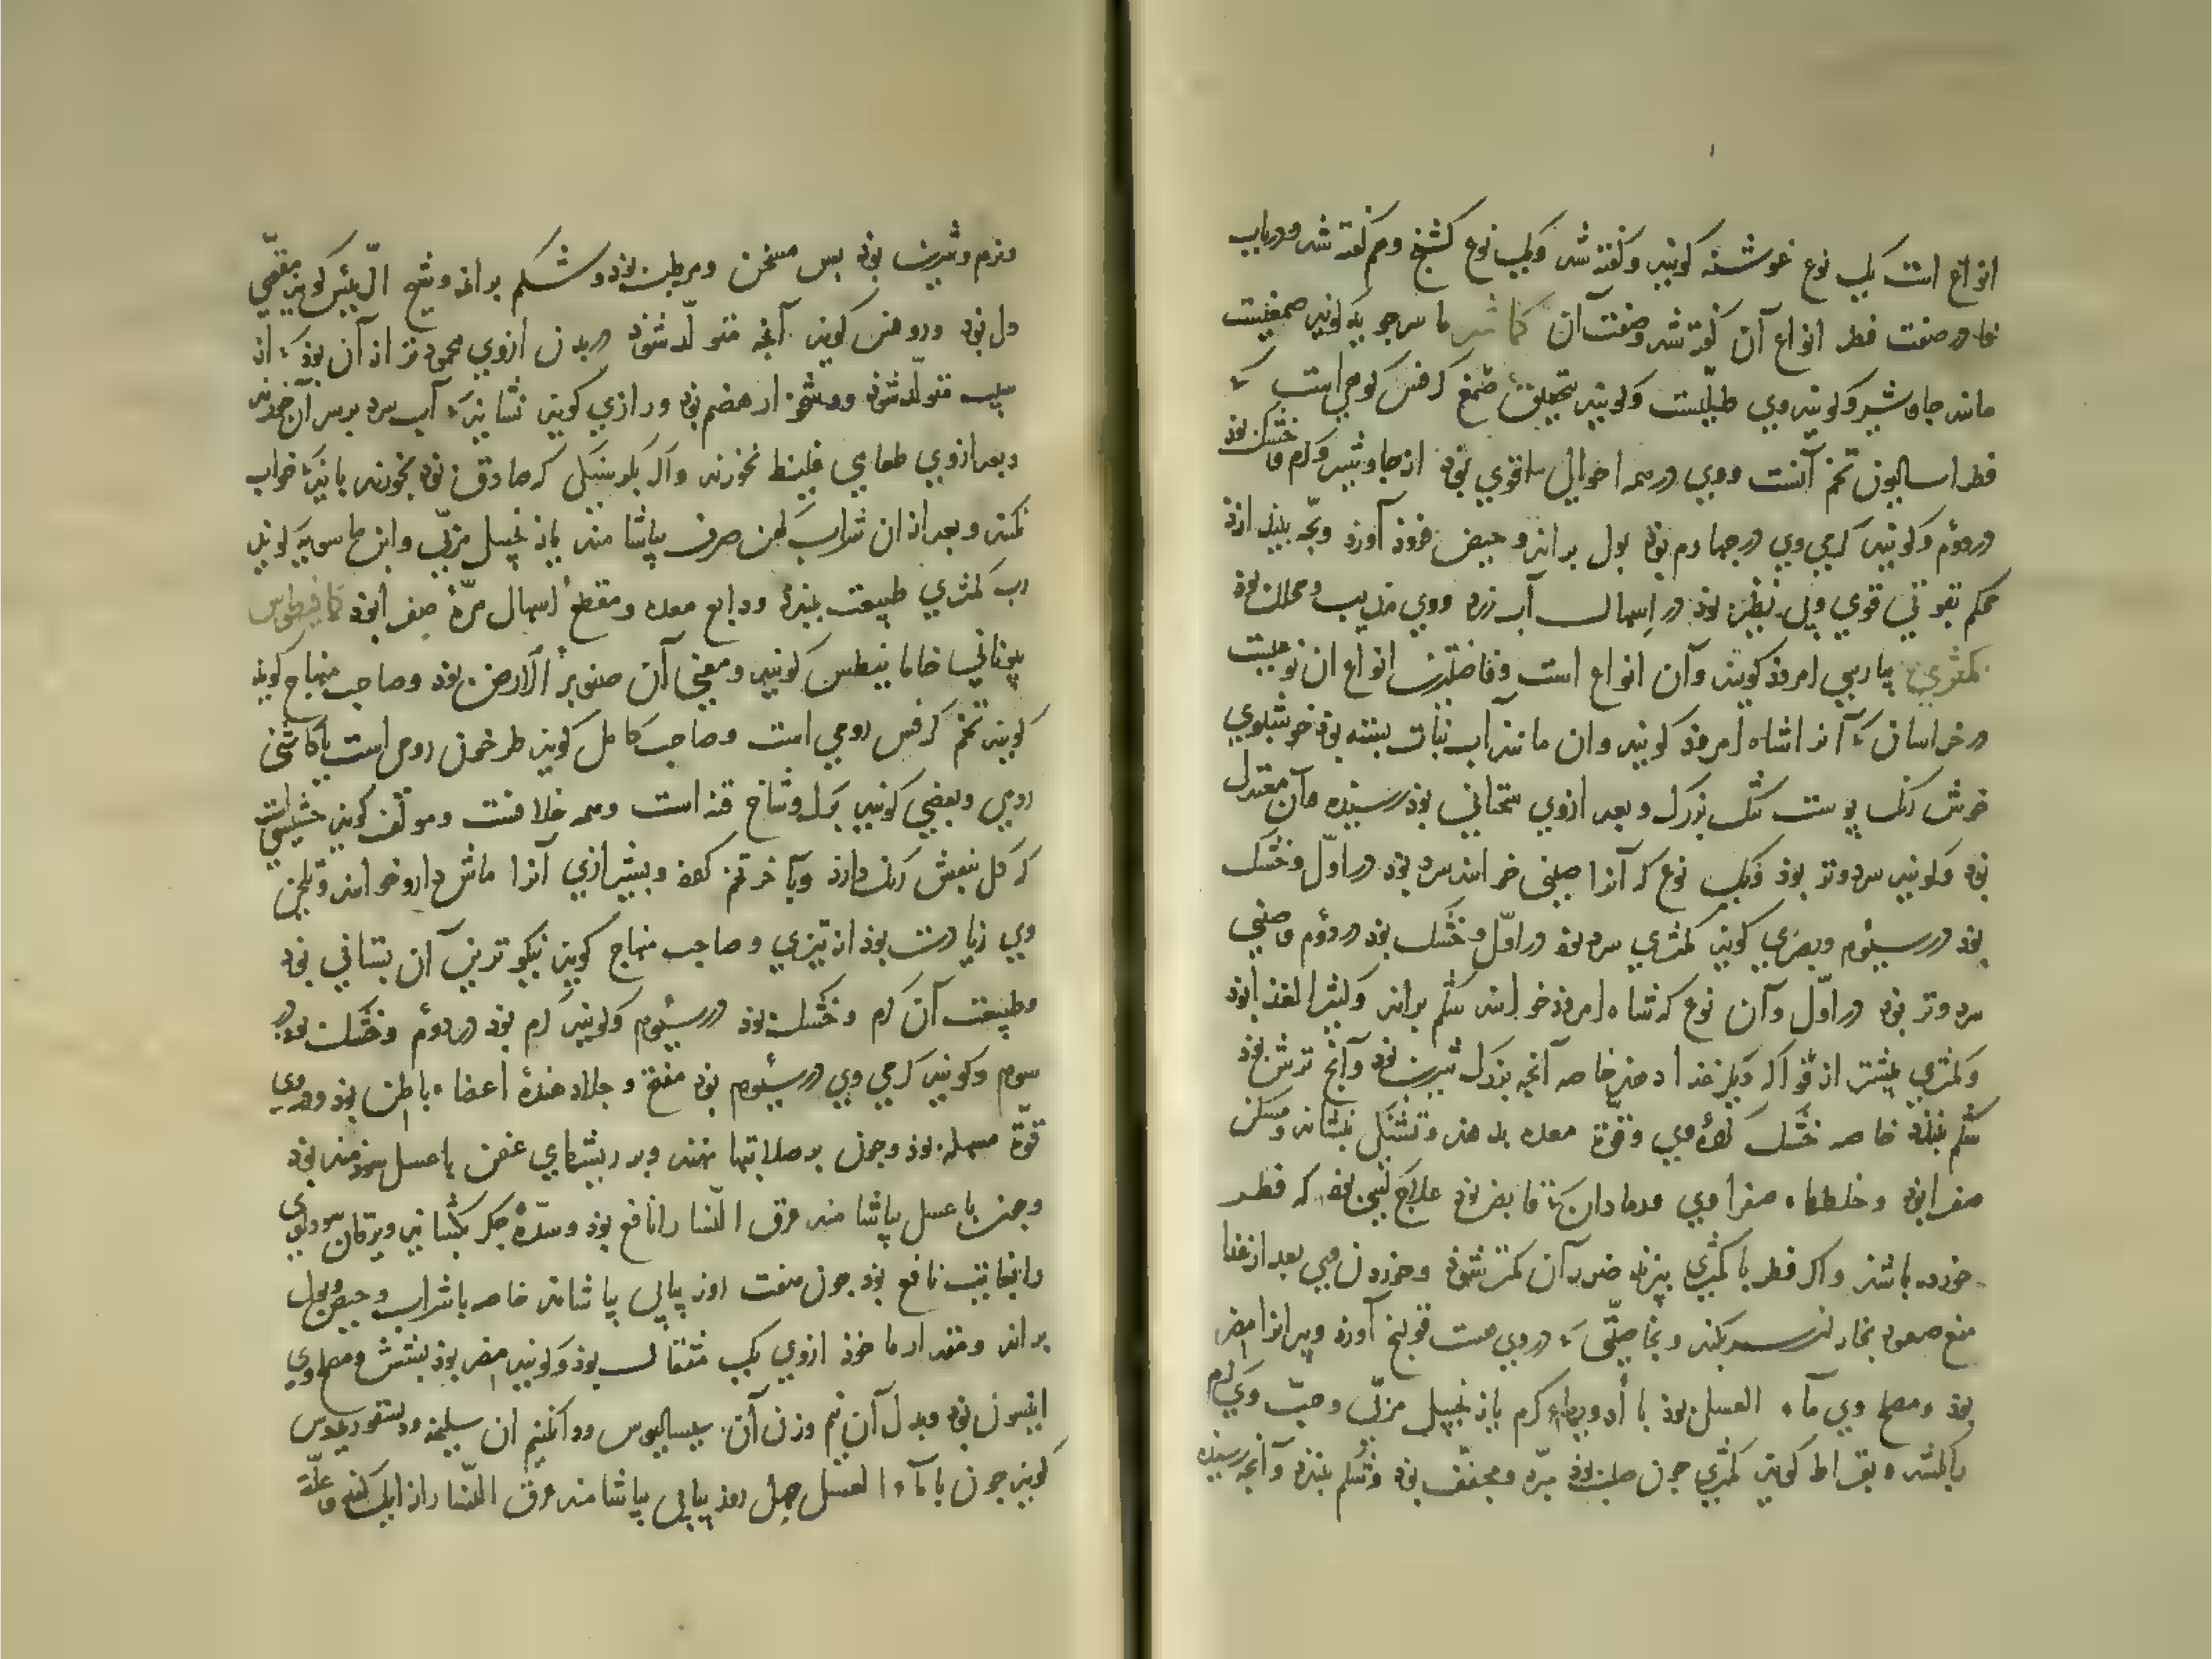 انواع است یک نوع غوشنه کویند و کفته شد و یک نوع کشنج و هم کفته شد و در باب
فا در صفت فطر انواع آن کفته شد و صفت آن کماشیر ماسرجویه کوید صمغیست
مانند جاوشیر و کویند وی طلیست و کویند بتحقیق صمغ کرفس کوهی است که
فطراسالیون تخم آنست و وی در همه احوال قوی بود از جاوشیر و کرم و خشک بود
در دوم و کویند کرمی وی در چهارم بود بول براند و حیض فرود آورد و بچه بیندازد
محکم بقوتی قوی و بی نظیر بود در اسهال آب زرد و وی مذیب و محلل بود
کمثری بپارسی امرود کویند و آن انواع است و فاضلترین انواع ان نوعیست
در خراسان که آنرا شاه امرود کویند و ان مانند آب نبات بسته بود خوشبوی
خوش رنک پوست تنک بزرک و بعد ازوی سجستانی بود رسیده و آن معتدل
بود و کویند سرد و تر بود و یک نوع که آنرا صینی خوانند سرد بود در اول و خشک
بود در سیوم و بصری کوید کمثری سرد بود در اول و خشک بود در دوم و صینی
سرد و تر بود در اول و آن نوع که شاه امرود خوانند شکم براند و کثیر الغذا بود
و کمثری بیشتر از فواکه دیکر غذا دهد خاصه آنچه بزرک شیرین بود و آنچ ترش بود
شکم ببندد خاصه خشک کرده وی و قوة معده بدهد و تشنکی بنشاند و مسکن
صفرا بود و خلطهاء صفراوی قابض بود علاج کسی بود که فطر
خورده باشد و اکر فطر با کمثری بپزند ضرر آن کمتر شود و خوردن وی بعد از غذا
منع صعود بخار از سر بکند و بخاصیتی که در وی هست قولنج آورد و پیرانرا مضر
بود و مصلح وی مآء العسل بود با أدویهاء کرم یا زنجبیل مربی و حب وی کرم
باشد و بقراط کوید کمثری چون صلب بود مبرد و مجفف بود و شکم ببندد و آنچه رسیده
و نرم و شیرین بود پس مسخن و مرطب بود و شکم براند و شیخ الرئیس کوید مقوی
دل بود و روفس کوید آنچه متولد شود در بدن ازوی محمودتر از آن بود که از
سیب متولد شود و زودتر از هضم بود و رازی کوید نشاید که آب سرد بر سر آن خورند
و بعد ازوی طعامی غلیظ نخورند و اکر بکرسنکی که صادق بود بخورند باید که خواب
نکنند و بعد از ان شراب کهن صرف بیاشامند یا زنجبیل مربی و ابن ماسویه کوید
رب کمثری طبیعت ببندد و دابغ معده و مقطع اسهال مرة صفرا بود کمافیطوس
بیونانی خامافیطس کویند و معنی آن صنوبر الارض بود و صاحب منهاج کوید
کویند تخم کرفس رومی است و صاحب کامل کوید طرخون رومی است یا کاشنی
رومی و بعضی کویند کل و شاخ قنه است و همه خلافست و مولف کوید حشیشی است
که کل بنفش رنک دارد و بآخر تخم کند و بشیرازی آنرا ماش دارو خوانند و تلخی
وی زیادت بود از تیزی و صاحب منهاج کوید نیکوترین آن بستانی بود
و طبیعت آن کرم و خشک بود در سیوم و کویند کرم بود در دوم و خشک بود در
سوم و کویند کرمی وی در سیوم بود مفتح و جلا دهندۀ اعضاء باطن بود و در وی
قوة مسهله بود و چون بر صلابتها نهند و بر ریشهای عفن با عسل سودمند بود
و چون با عسل بیاشامند عرق النسا را نافع بود و سدۀ جکر بکشاید و یرقان سوداوی
را بغایت نافع بود چون هفت روز پیاپی بیاشامند خاصه با شراب و حیض و بول
براند و مقدار ماخوذ ازوی یک مثقال بود و کویند مضر بود بشش و مصلح وی
انیسون بود و بدل آن نیم وزن آن سیسالیوس و دانکنیم ان سلیخه و دیسقوریدوس
کوید چون با مآء العسل چهل روز پیاپی بیاشامند عرق النسا را زایل کند و علة